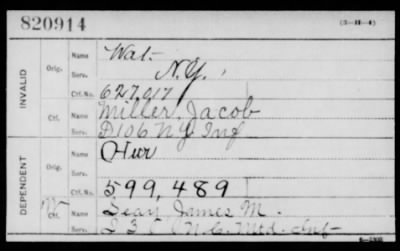 820914
(3-H-4)
INVALID
Orig.
Name
Wat.
Serv.
N.Y.
Ctf. No.
627,017
Ctf.
Name
Miller, Jacob
Serv.
D 106 N.Y. Inf
DEPENDENT
Orig.
Name
Serv.
Ctf. No.
599,489
Ctf.
Name
James M.
Serv.
N.C. Mtd. Inf